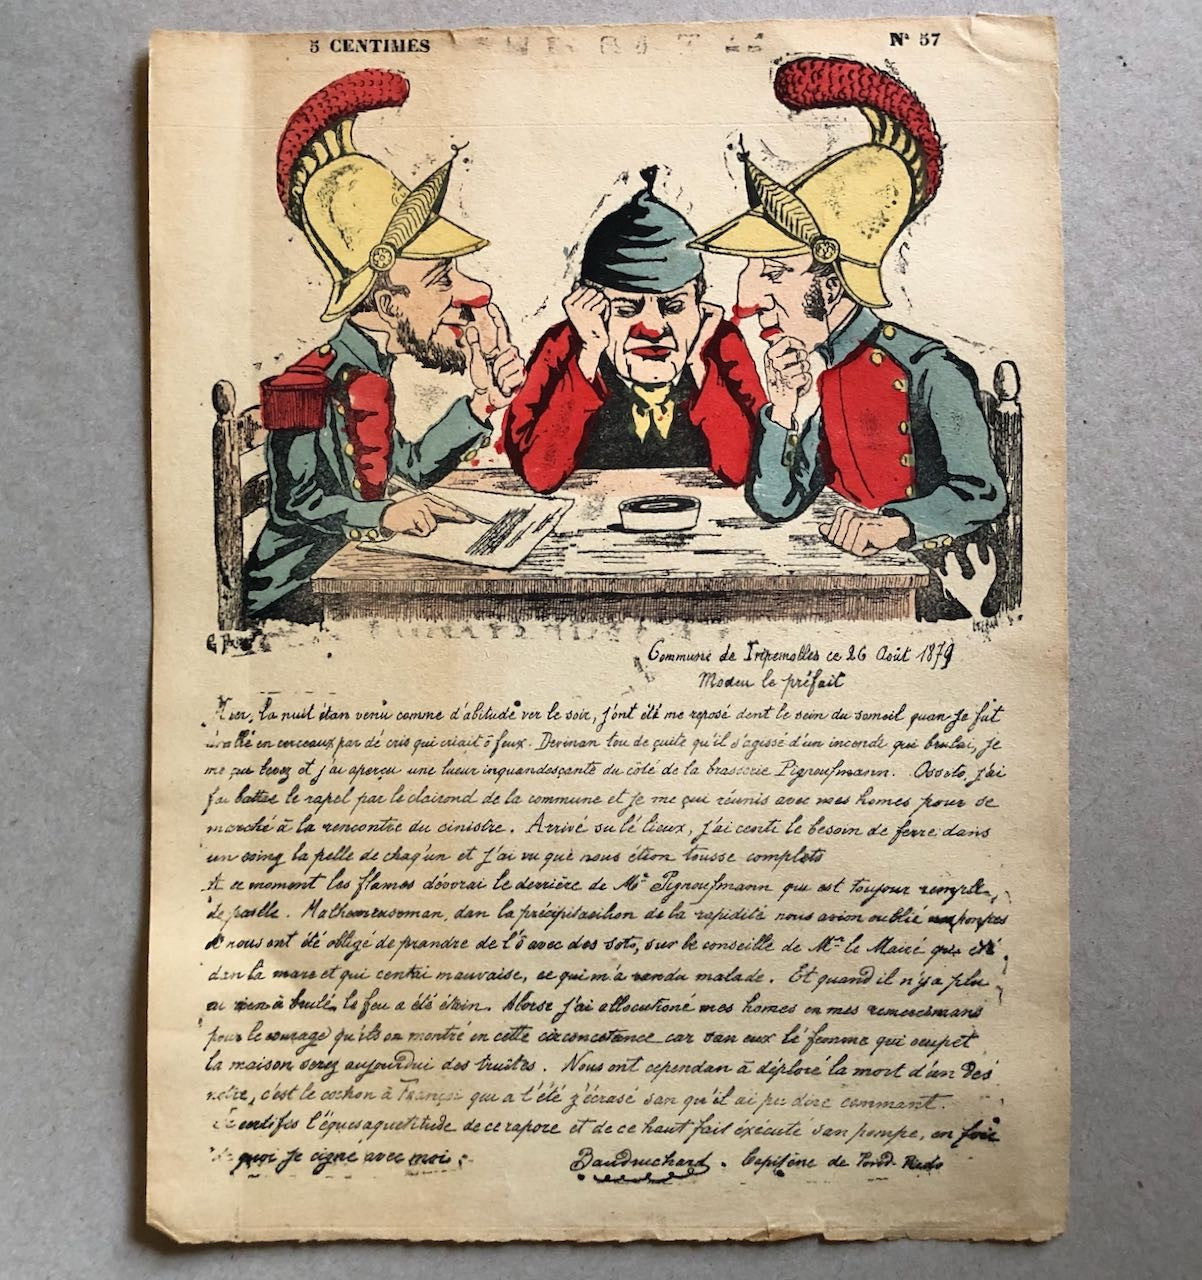 5 CENTIMES
Nº 57
Commune de Tripemolles ce 26 Août 1879
Mosieu le préfait
Hier, la nuit étan venu comme d'abitude ver le soir, j'ont été me reposé dent le sein du someil quan je fut
en cerceaux par dé cris qui criait ô feux. Devinan tou de çuite qu'il s'agissé d'un incendi qui brulai, je
me çui levez et j'ai aperçu une lueur inquandesçante du côté de la brasserie Pignoufmann. Ossoto, j'ai
fai battre le rapel par le clairond de la commune et je me çui réunis avec mes homes pour se
marché à la rencontre du sinistre. Arrivé su lé lieux, j'ai centi le besoin de ferre dans
un coing la pelle de chaq'un et j'ai vu que nous étion tousse complets
A ce moment les flames dévorai le derrière de Mr Pignoufmann qui est toujour remplit
de paelle. Malheureuseman, dan la précipitasilion de la rapidité nous avion oublié pompes
nous ont été obligé de prandre de l'ô avec des sots, sur le conseille de Mr le Maire qui
dan la mare et qui centai mauvaise, ce qui m'a randu malade. Et quand il n'y a plu
u rien à brulé le feu a été étein. Alorse j'ai allocutioné mes homes en mes remercimans
pour le courage qu'ils on montré en cette circoncstance car san eux lé femme qui ocupet
la maison serez aujourdui des truites. Nous ont cependan à déploré la mort d'un des
nôtre, c'est le cochon à Françoi qui a t'été z'écrasé san qu'il ai pu dire commant.
certifis l'équesaquetitude de ce rapore et de ce haut fait éxécuté san pompe, en foie
quoi je cigne avec moi:
Baudruchard. Capitène de Pond